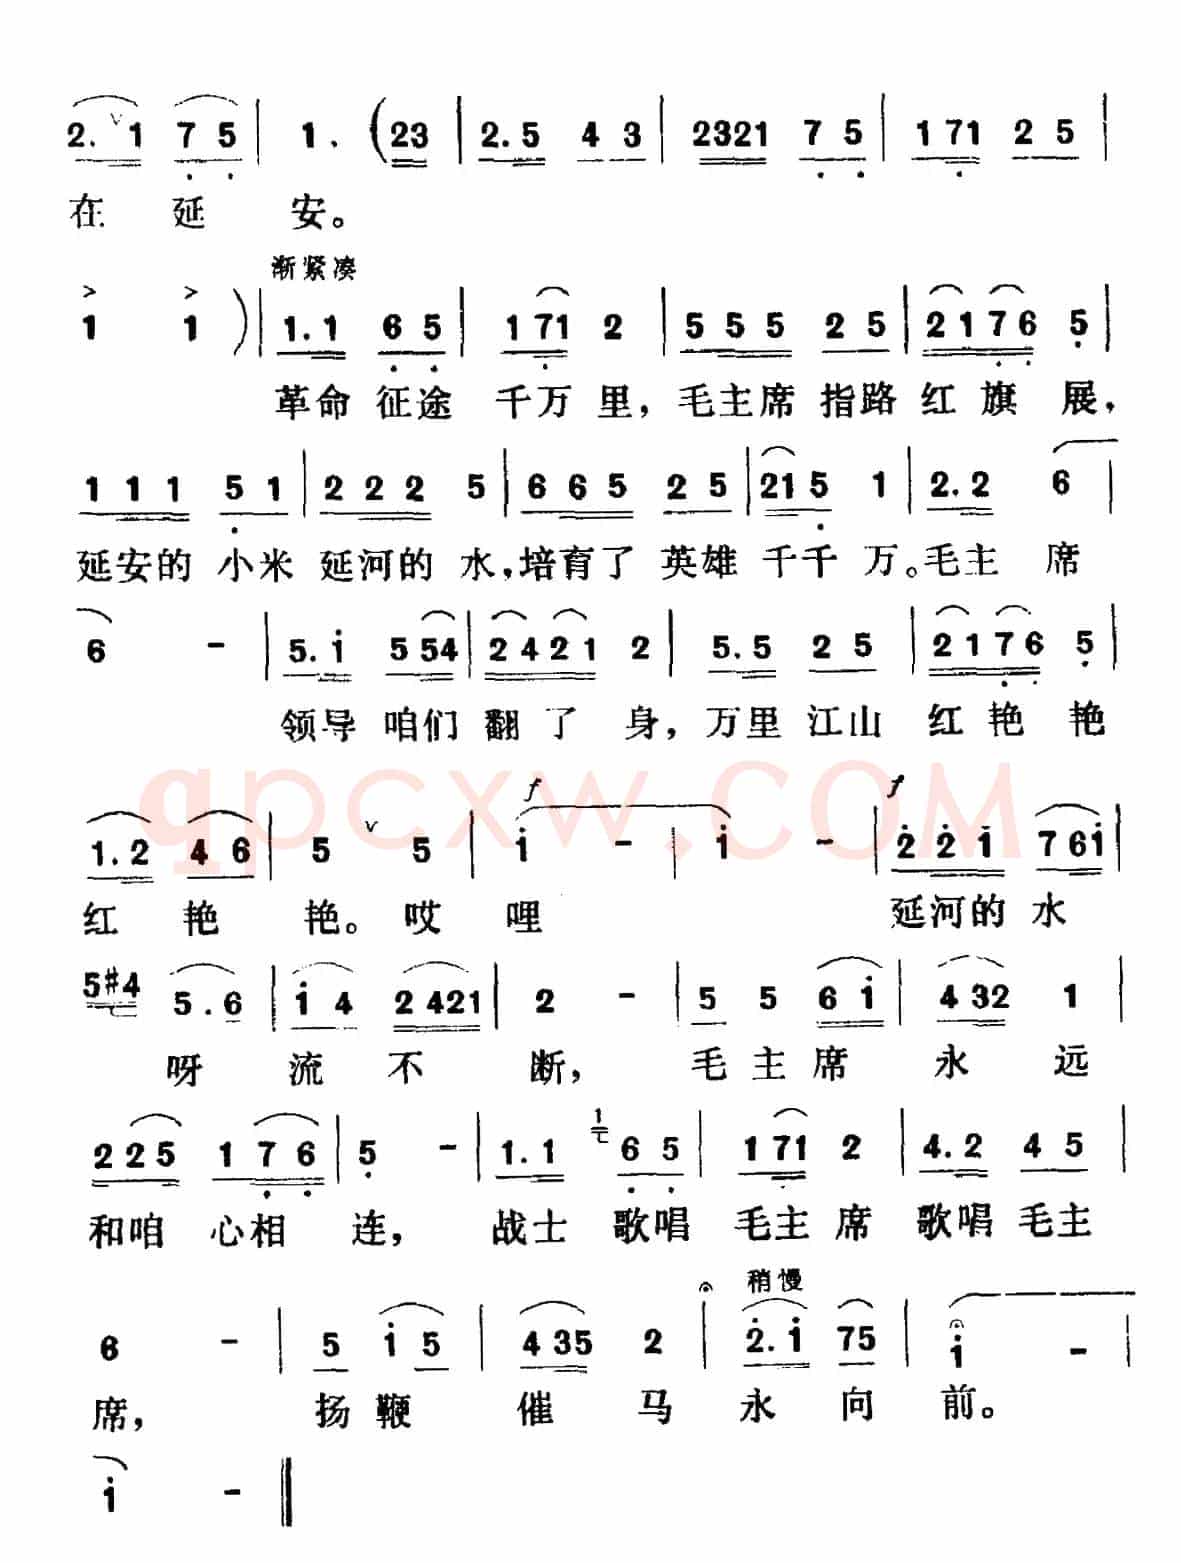 2. 1 7 5 | 1. (23 | 2.5 4 3 | 2321 7 5 | 171 2 5 |
在 延 安。
渐紧凑
1 1 ) | 1.1 6 5 | 1 71 2 | 5 5 5 2 5 | 2 1 7 6 5 |
革命 征途 千万 里，毛主席 指路 红旗 展，
1 1 1 5 1 | 2 2 2 5 | 6 6 5 2 5 | 21 5 1 | 2.2 6 |
延安的 小米 延河的 水，培育了 英雄 千千 万。毛主 席
6 - | 5.i 5 54 | 2 4 2 1 2 | 5.5 2 5 | 2 1 7 6 5 |
领导 咱们 翻 了 身，万里 江山 红 艳 艳
qpcxw.COM
f f
1.2 4 6 | 5 5 | i - | i - | 2 2 i 7 6i |
红 艳 艳。哎 哩 延河的 水
5#4 5 . 6 | i 4 2 421 | 2 - | 5 5 6 i | 4 32 1 |
呀 流 不 断，毛 主 席 永 远
2 2 5 1 7 6 | 5 - | 1.1 1 6 5 | 1 71 2 | 4.2 4 5 |
和咱 心相 连，战士 歌唱 毛主 席 歌唱 毛主
稍慢
6 - | 5 i 5 | 4 35 2 | 2.i 75 | i - |
席，扬 鞭 催 马 永 向 前。
i - ‖